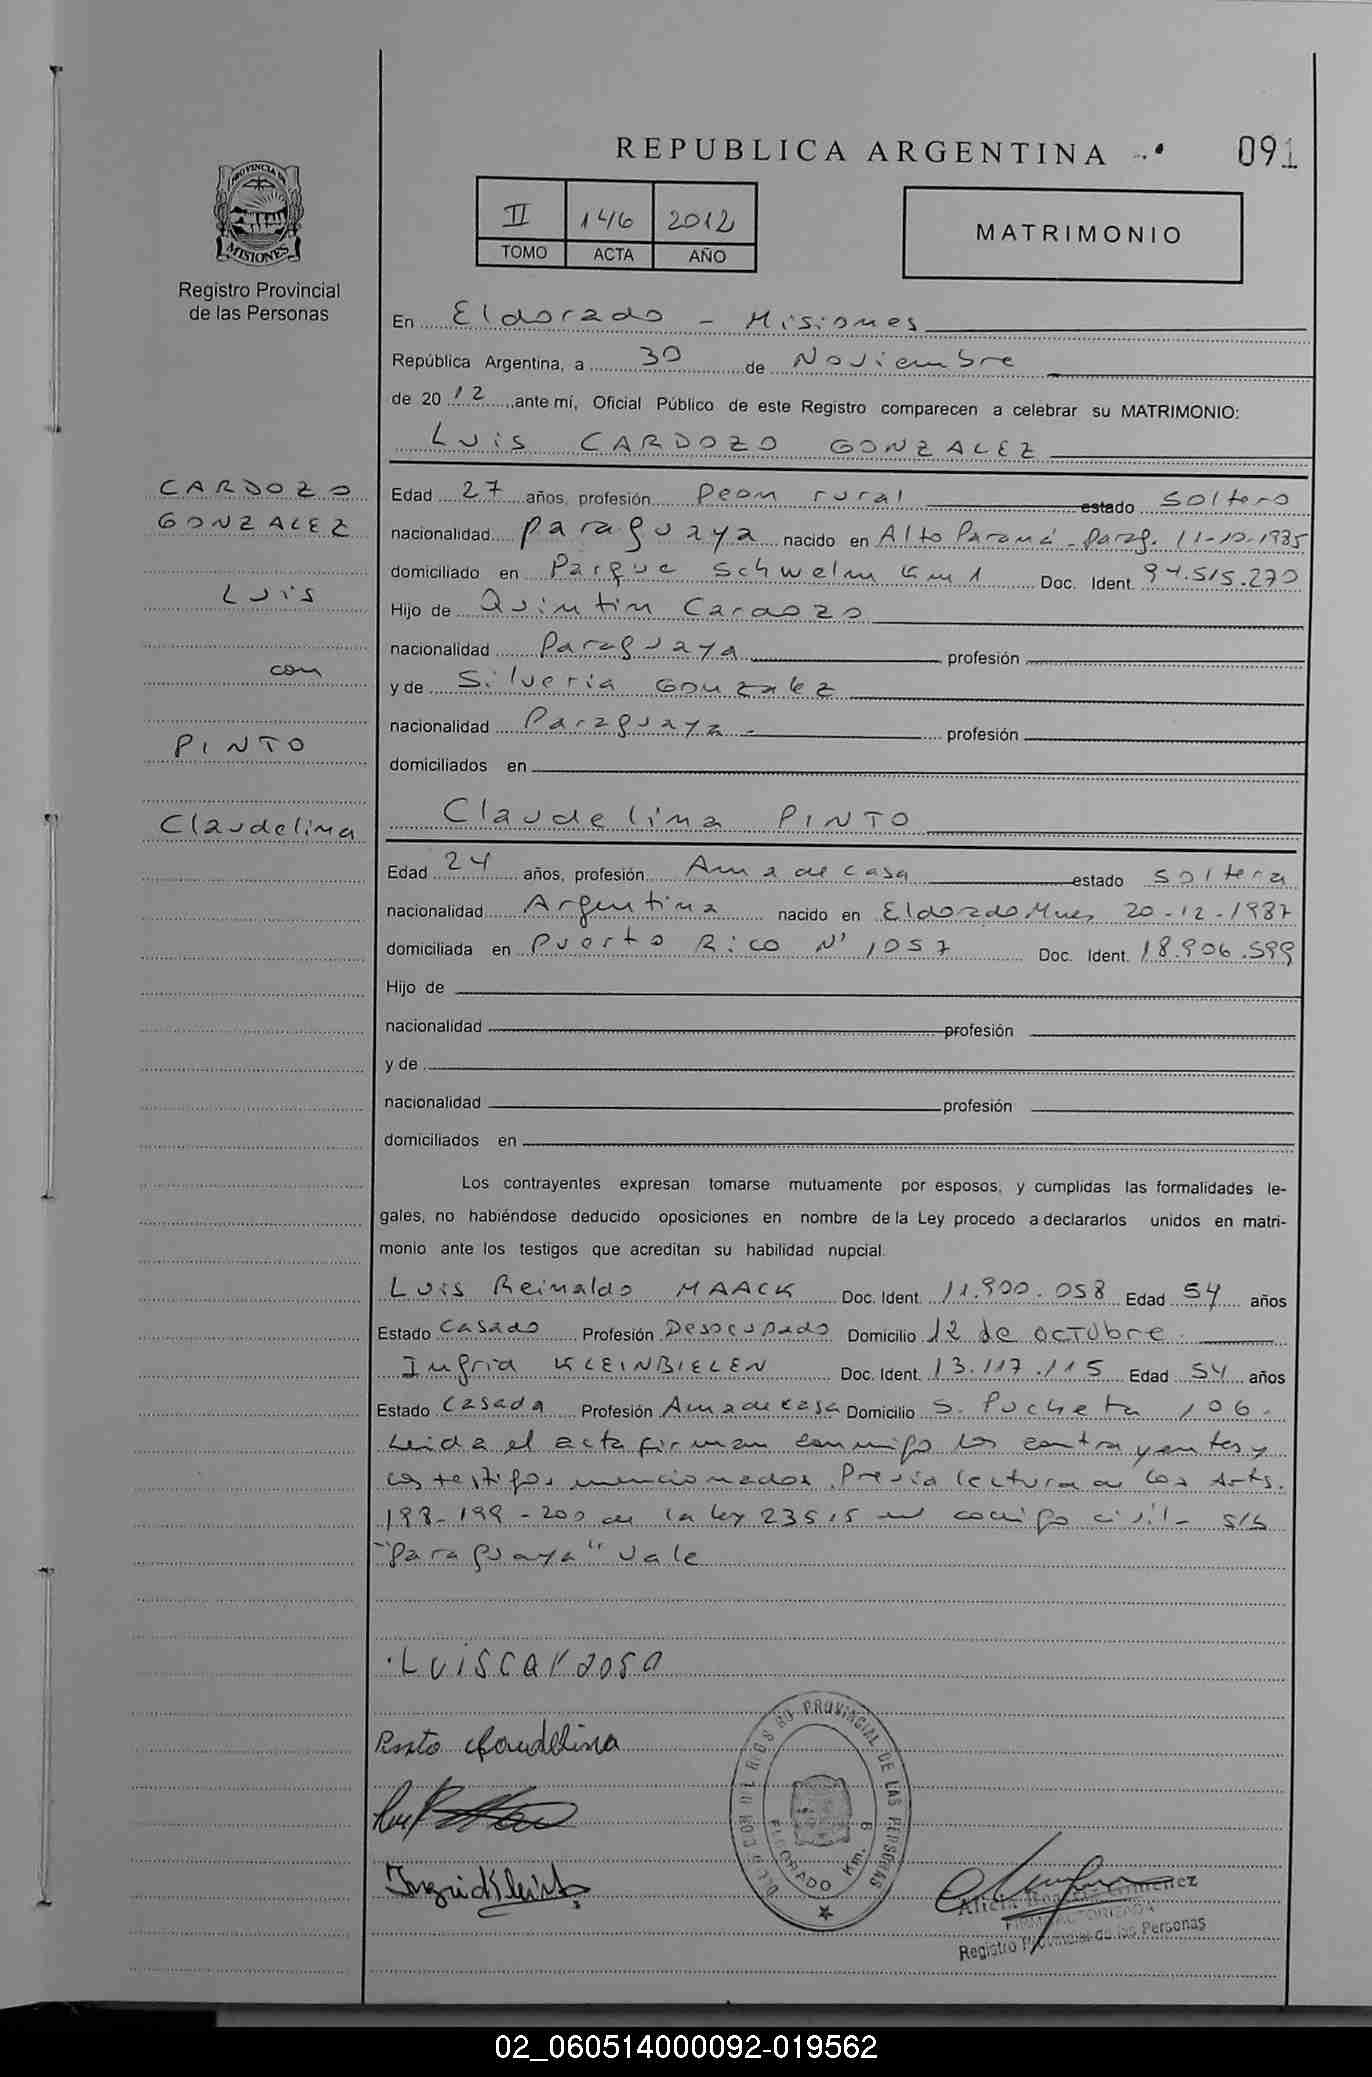 REPUBLICA ARGENTINA
091
PROVINCIA DE
MISIONES
Registro Provincial
de las Personas
II 146 2012
TOMO ACTA AÑO
MATRIMONIO
En Eldorado - Misiones
República Argentina, a 30 de Noviembre
de 2012, ante mí, Oficial Público de este Registro comparecen a celebrar su MATRIMONIO:
Luis CARDOZO GONZALEZ
CARDOZO
GONZALEZ
Luis
con
PINTO
Claudelina
Edad 27 años, profesión Peon rural estado soltero
nacionalidad paraguaya nacido en Alto Paraná - Parag. 11-10-1985
domiciliado en Parque Schwelm Km 1 Doc. Ident. 94.515.270
Hijo de Quintin Cardozo
nacionalidad Paraguaya profesión
y de Silveria Gonzalez
nacionalidad Paraguaya - profesión
domiciliados en
Claudelina PINTO
Edad 24 años, profesión Ama de casa estado soltera
nacionalidad Argentina nacido en Eldorado Mnes 20-12-1987
domiciliada en Puerto Rico N° 1057 Doc. Ident. 18.906.599
Hijo de
nacionalidad profesión
y de
nacionalidad profesión
domiciliados en
Los contrayentes expresan tomarse mutuamente por esposos, y cumplidas las formalidades le-
gales, no habiéndose deducido oposiciones en nombre de la Ley procedo a declararlos unidos en matri-
monio ante los testigos que acreditan su habilidad nupcial.
Luis Reinaldo MAACK Doc. Ident. 11.900.058 Edad 54 años
Estado Casado Profesión Desocupado Domicilio 12 de octubre.
Ingrid KLEINBIELEN Doc. Ident. 13.117.115 Edad 54 años
Estado Casada Profesión Ama de casa Domicilio S. Pucheta 106.
Leida el acta firman conmigo los contrayentes y
los testigos mencionados. Previa lectura de los Arts.
198-199-200 de la ley 23515 del codigo civil - S/b
"Paraguaya" vale
Luis Cardoso
Pinto Claudelina
Ingrid Kleinb
REGISTRO PROVINCIAL DE LAS PERSONAS
ELDORADO Km.
Alicia Gimenez
FIRMA AUTORIZADA
Registro Provincial de las Personas
02_060514000092-019562